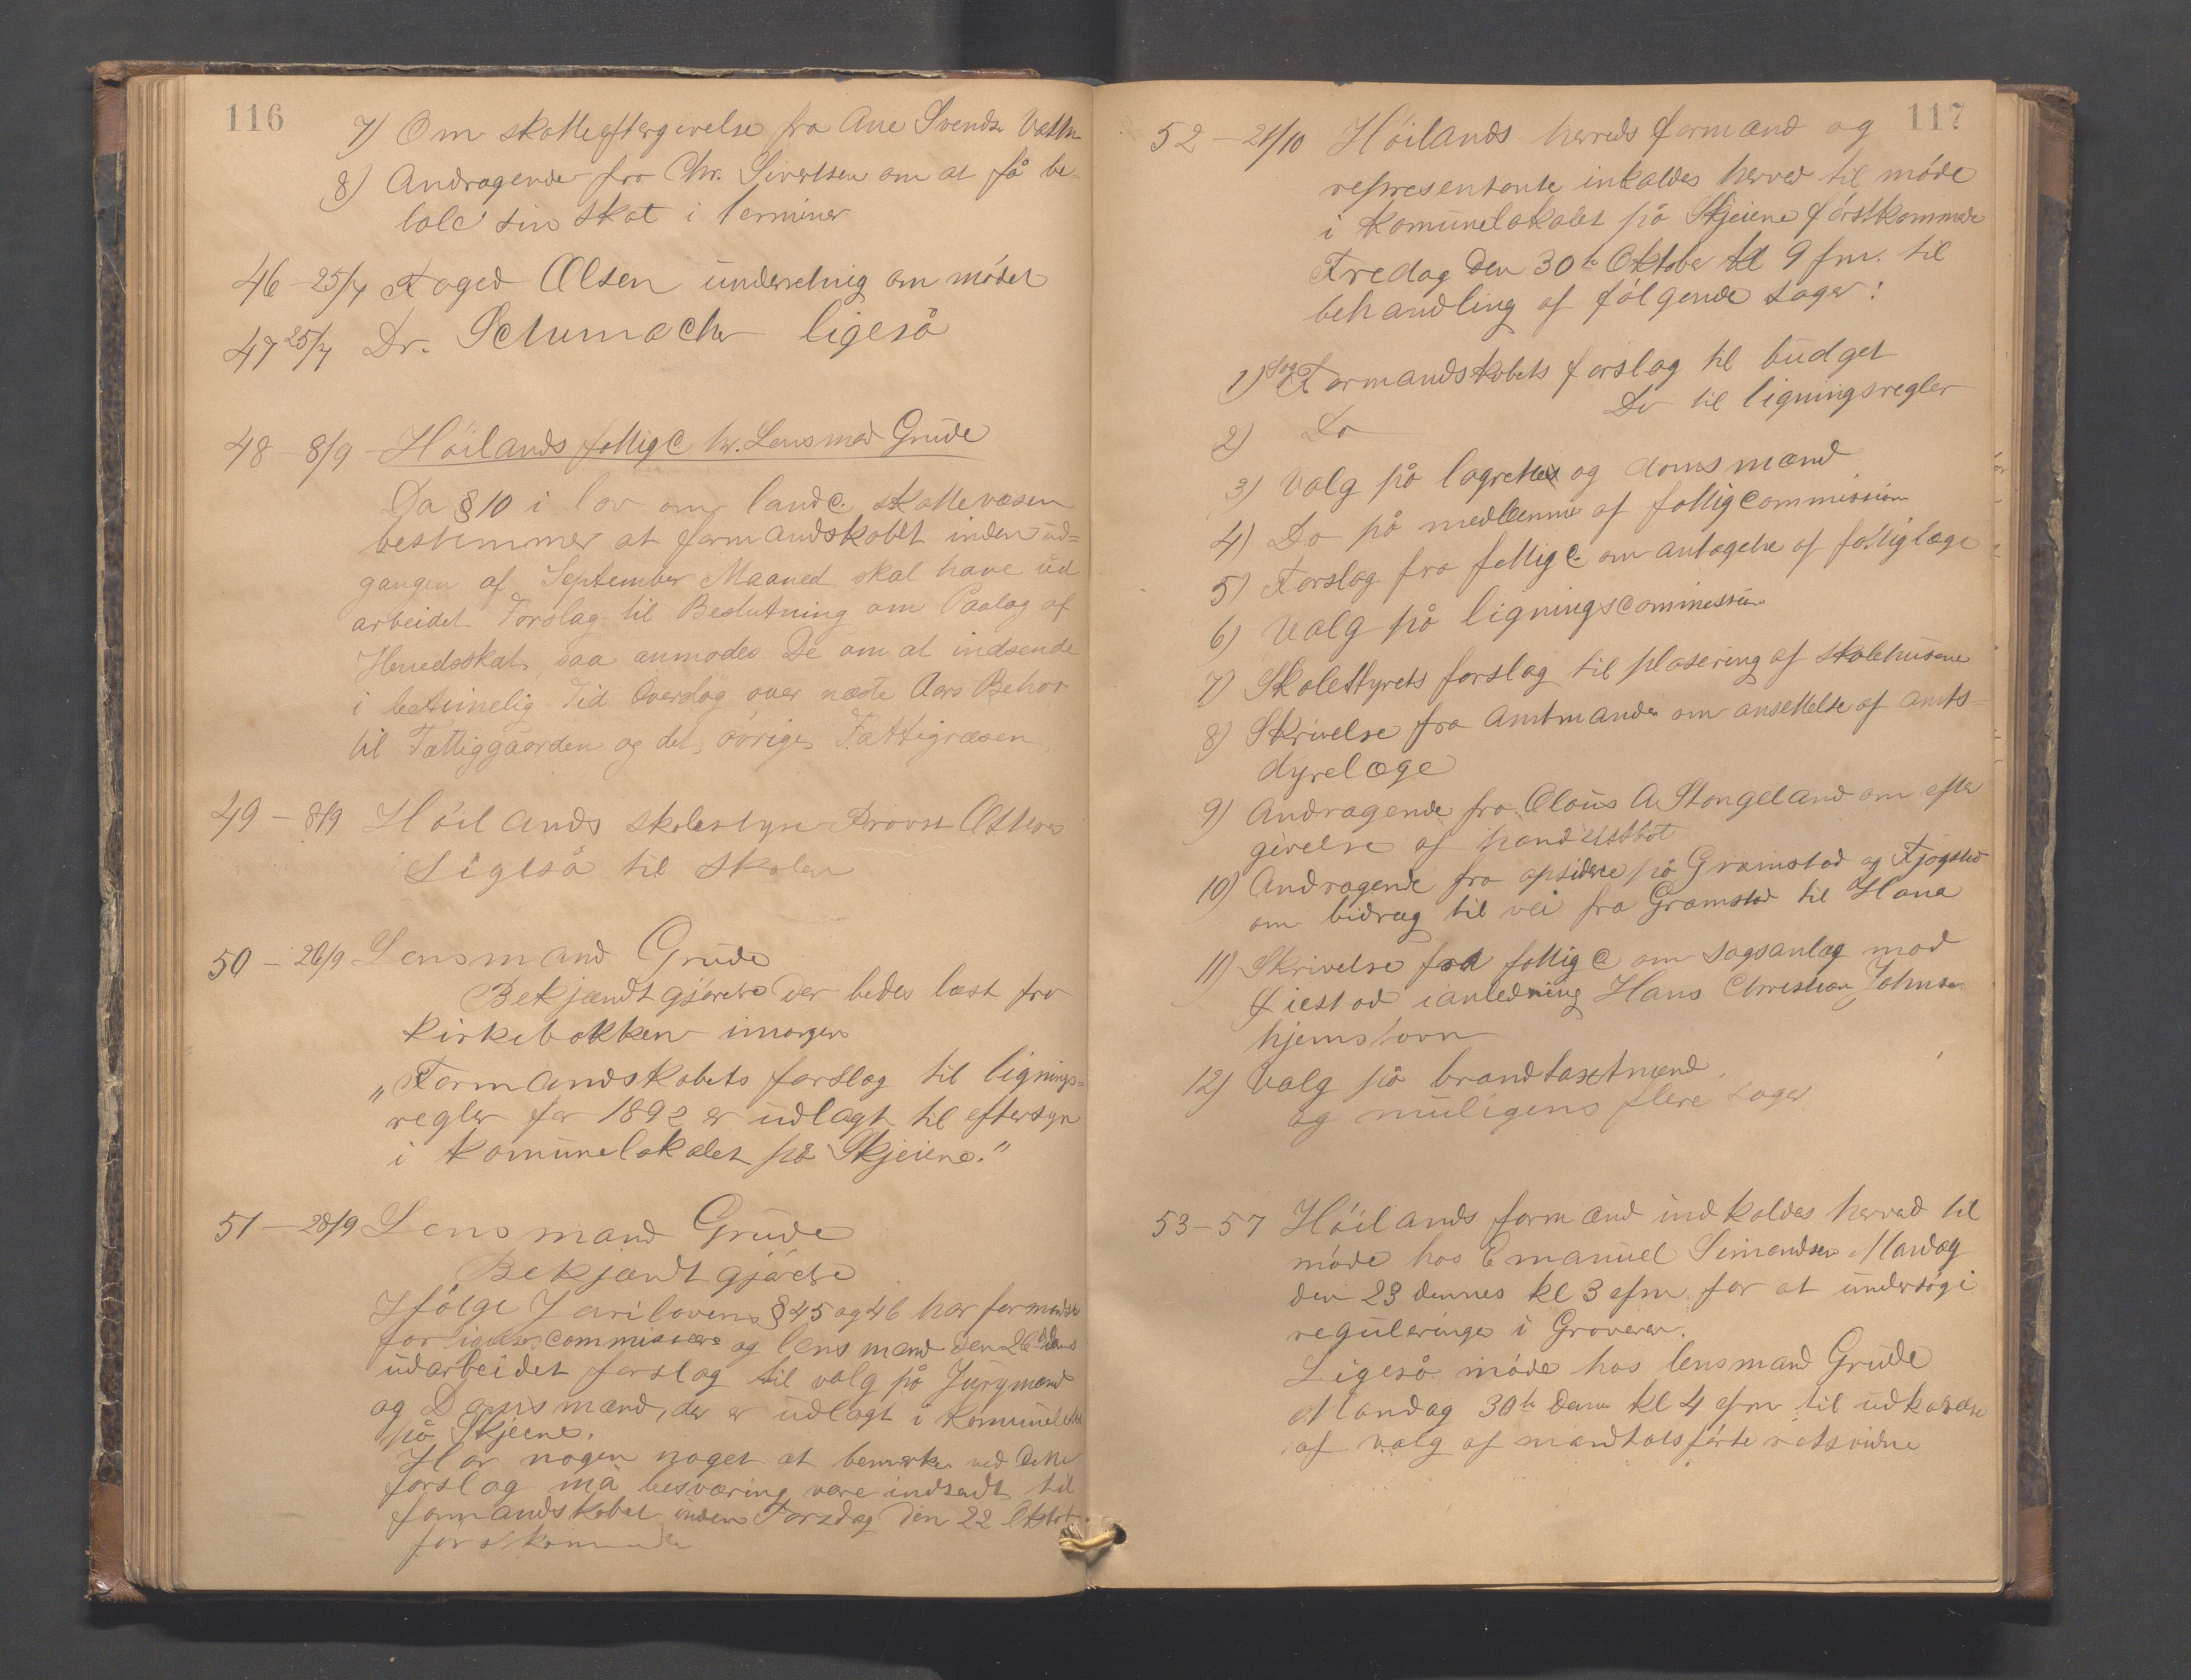 116
7) Om skatteeftergivelse fra Ane Svends. Vatne
8) Andragende fra Chr. Sivertsen om at få be-
tale sin skat i terminer
46 - 25/7 Foged Olsen underretnig om mødet
47 25/7 Dr. Schumacher ligeså
48 - 8/9 - Höilands fattigc hr. Lensmad Grude
Da § 10 i lov om landc. skattevæsen
bestemmer at formandskabet inden ud=
gangen af September Maaned skal have ud
arbeidet Forslag til Beslutning om Paalæg af
Herredsskat, saa anmodes De om at indsende
i betimelig Tid Overslag over næste Aars Behov
til Fattiggaarden og det øvrige Fattigvæsen
49 - 8/9 Höilands skolestyre Provst
Ligeså til skolen
50 - 26/9 Lensmand Grude
Bekjændtgjørelse der bedes læst fra
kirkebakken imorgen
„Formandskabets forslag til lignings=
regler for 1892 er udlagt til eftersyn
i komunelokalet på Skjeiene."
51 - 28/9 Lensmand Grude
Bekjændtgjørelse
Ifølge Jurilovens § 45 og 46 har formandsk
forligelsescommissære og lensmand den 26de ds
udarbeidet forslag til valg på Jurymænd
og Domsmænd, der er udlagt i komunelokal
på Skjeiene.
Har nogen noget at bemærke ved dette
forslag må besværing være indsendt til
formandskabet inden Torsdag den 22 Oktob.
førstkommende
117
52 - 21/10 Höilands herreds formænd og
representante inkaldes herved til møde
i komunelokalet på Skjeiene førstkommende
Fredag den 30te Oktober kl 9 fm. til
behandling af følgende sager:
1) Sag Formandskabets forslag til budget
2) Do Do til ligningsregler
3) Valg på lagrettes og domsmænd
4) Do på medlemme af fattigcommission
5) Forslag fra fattigc om antagelse af fattiglæge
6) Valg på ligningscommission
7) Skolestyrets forslag til plasering af skolehusene
8) Skrivelse fra Amtmanden om ansettelse af amts-
dyrelæge
9) Andragende fra Olaus A. Stangeland om efter
givelse af handelsskat
10) Andragende fra opsidere på Gramstad og Fjogstad
om bidrag til vei fra Gramstad til Hana
11) Skrivelse fra fattigc om sagsanlæg mod
Fiestad ianledning Hans Christian Johnsen
hjemstavn
12) Valg på brandtaxtmænd
og muligens flere sager
53-57 Höilands formænd indkaldes herved til
møde hos Emanuel Simondsen Mandag
den 23 dennes kl 3 efm. for at undersøge
reguleringer i Graveren.
Ligeså møde hos lensmand Grude
Mandag 30te denne kl 4 efm til udkastelse
af valg af mandtalsførte retsvidne